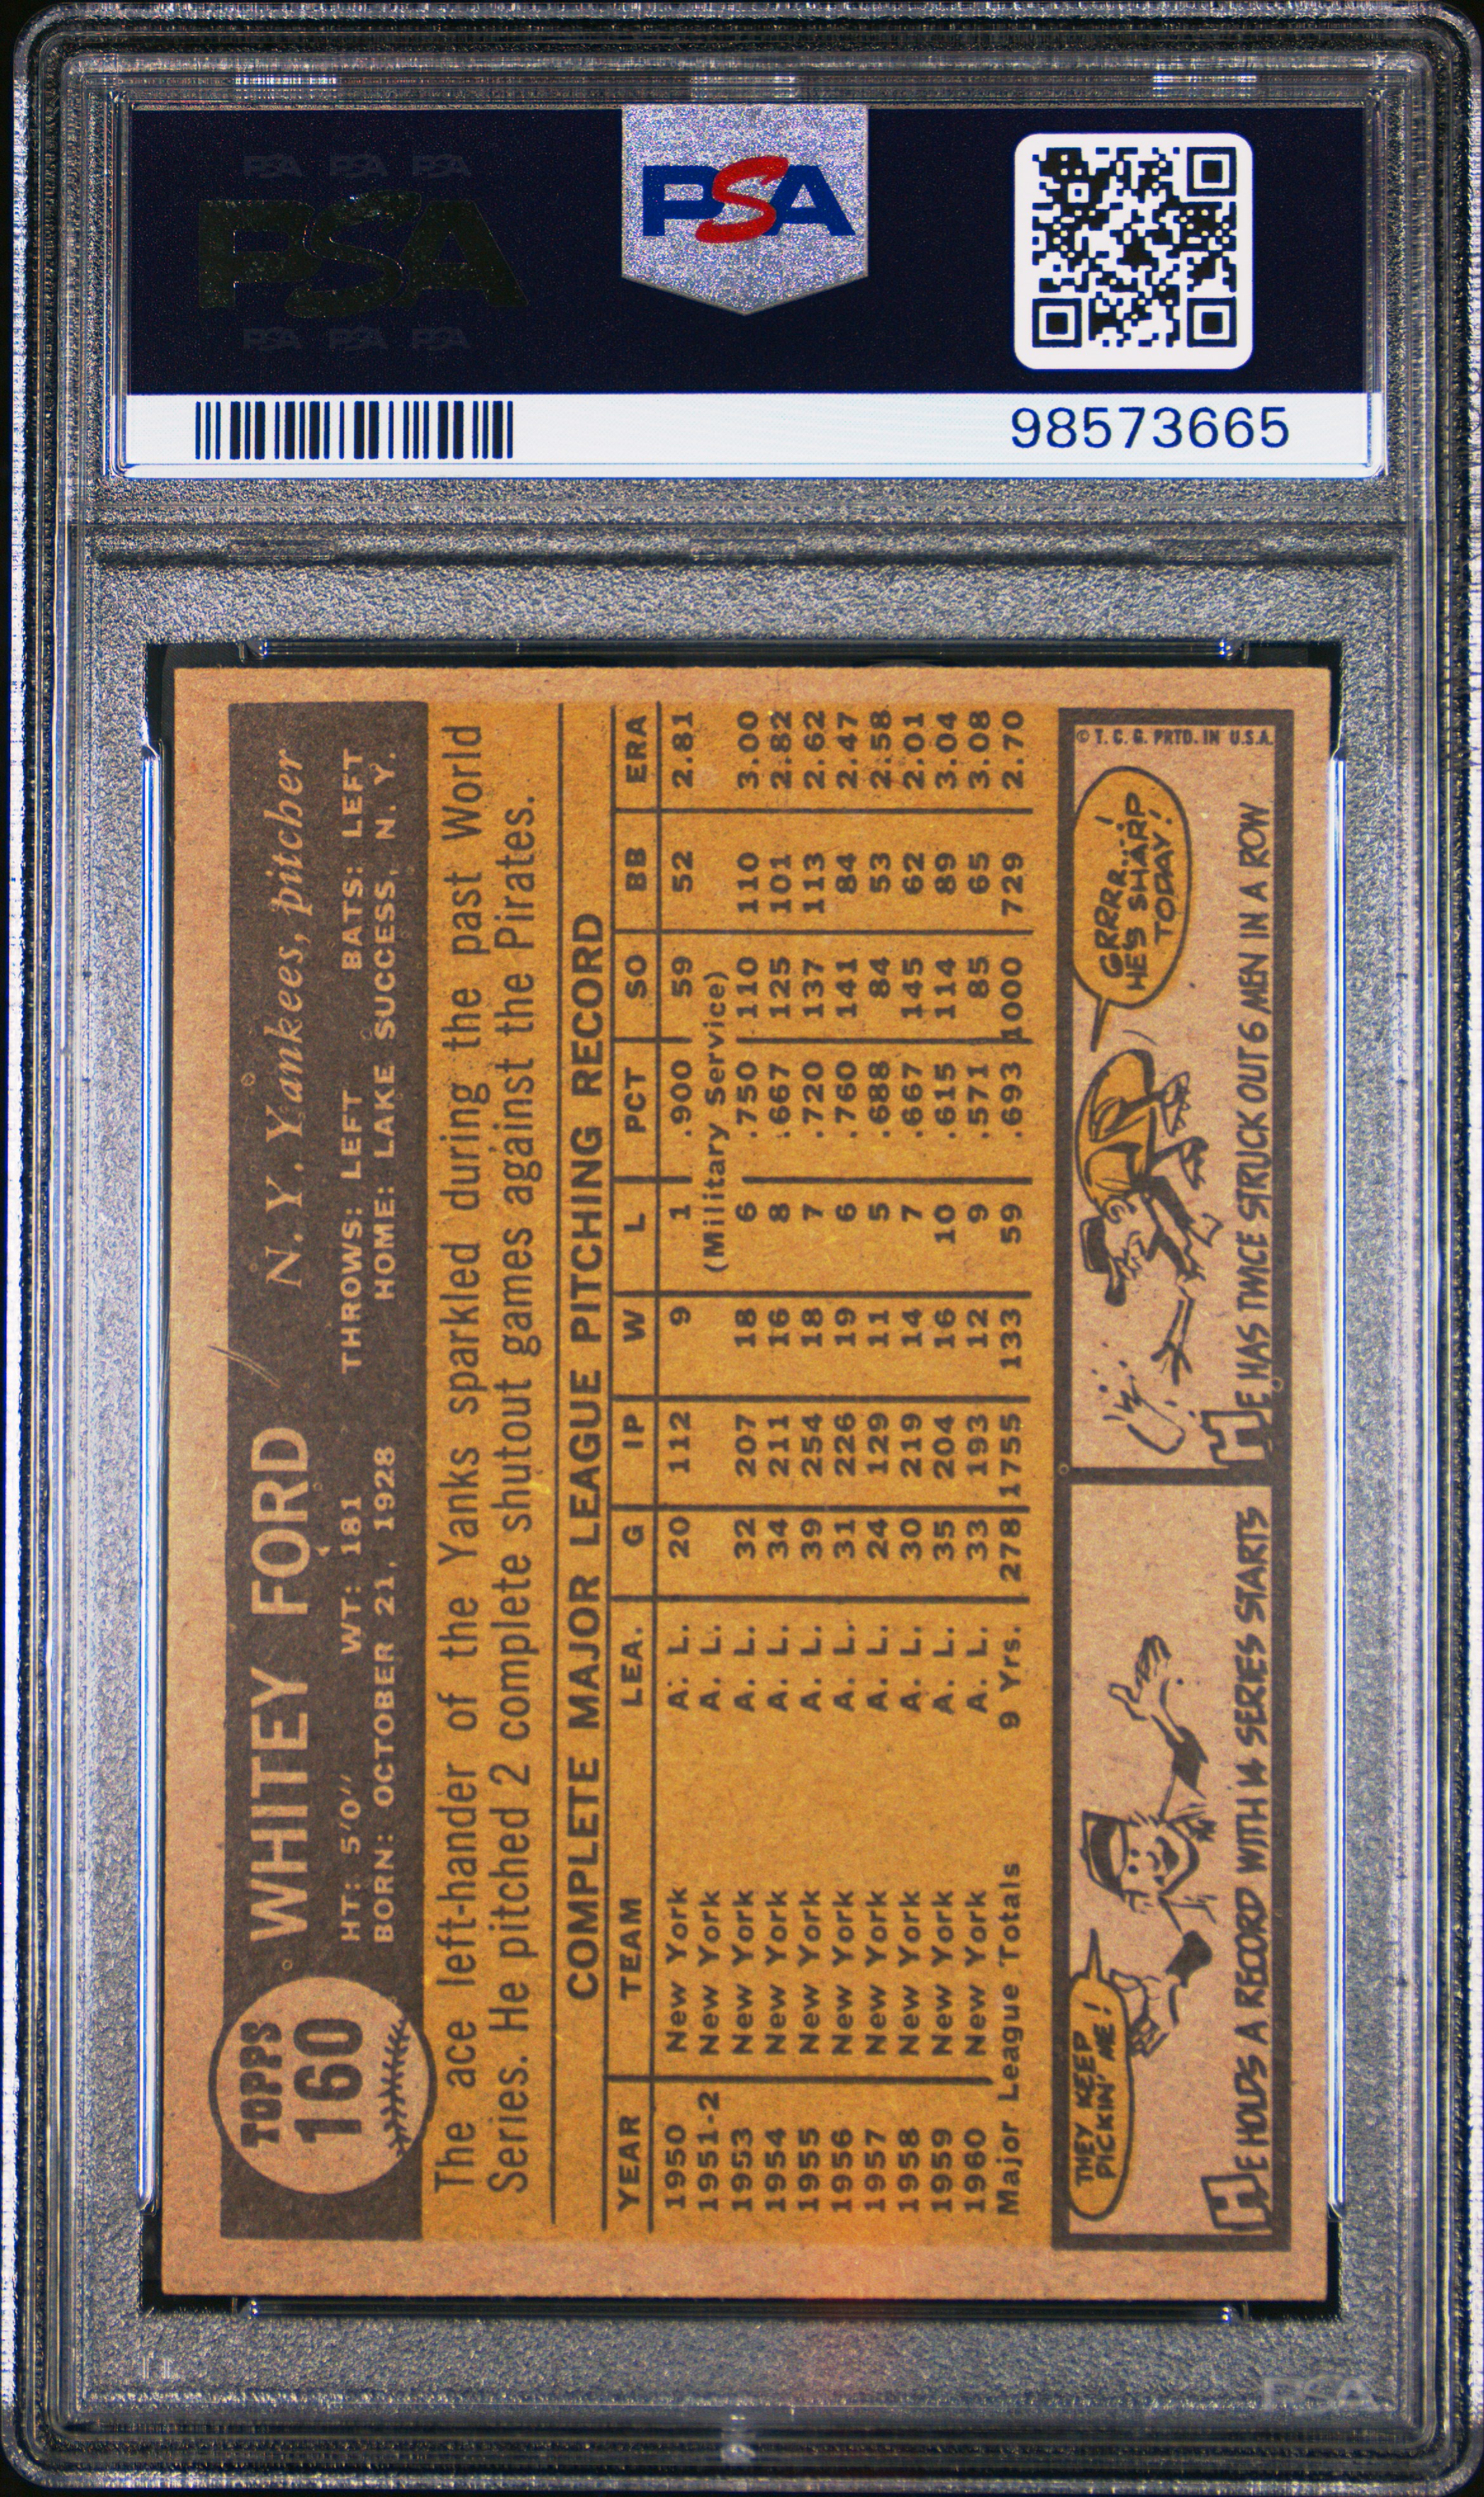 PSA PSA PSA
PSA
PSA PSA PSA
PSA
98573665
TOPPS
160
WHITEY FORD
N. Y. Yankees, pitcher
HT: 5'0" WT: 181 THROWS: LEFT BATS: LEFT
BORN: OCTOBER 21, 1928 HOME: LAKE SUCCESS, N. Y.
The ace left-hander of the Yanks sparkled during the past World
Series. He pitched 2 complete shutout games against the Pirates.
COMPLETE MAJOR LEAGUE PITCHING RECORD
YEAR TEAM LEA. G IP W L PCT SO BB ERA
1950 New York A. L. 20 112 9 1 .900 59 52 2.81
1951-2 New York A. L. (Military Service)
1953 New York A. L. 32 207 18 6 .750 110 110 3.00
1954 New York A. L. 34 211 16 8 .667 125 101 2.82
1955 New York A. L. 39 254 18 7 .720 137 113 2.62
1956 New York A. L. 31 226 19 6 .760 141 84 2.47
1957 New York A. L. 24 129 11 5 .688 84 53 2.58
1958 New York A. L. 30 219 14 7 .667 145 62 2.01
1959 New York A. L. 35 204 16 10 .615 114 89 3.04
1960 New York A. L. 33 193 12 9 .571 85 65 3.08
Major League Totals 9 Yrs. 278 1755 133 59 .693 1000 729 2.70
THEY KEEP
PICKIN' ME!
HE HOLDS A RECORD WITH 14 SERIES STARTS
GRRR...!
HE'S SHARP
TODAY!
HE HAS TWICE STRUCK OUT 6 MEN IN A ROW
© T. C. G. PRTD. IN U.S.A.
PSA